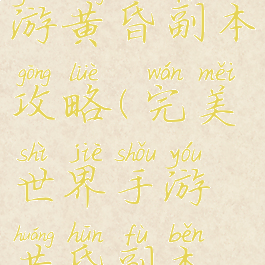 游黄昏副本
gōng lüè wán měi
攻略(完美
shì jiè shǒu yóu
世界手游
huáng hūn fu běn
黄昏副本